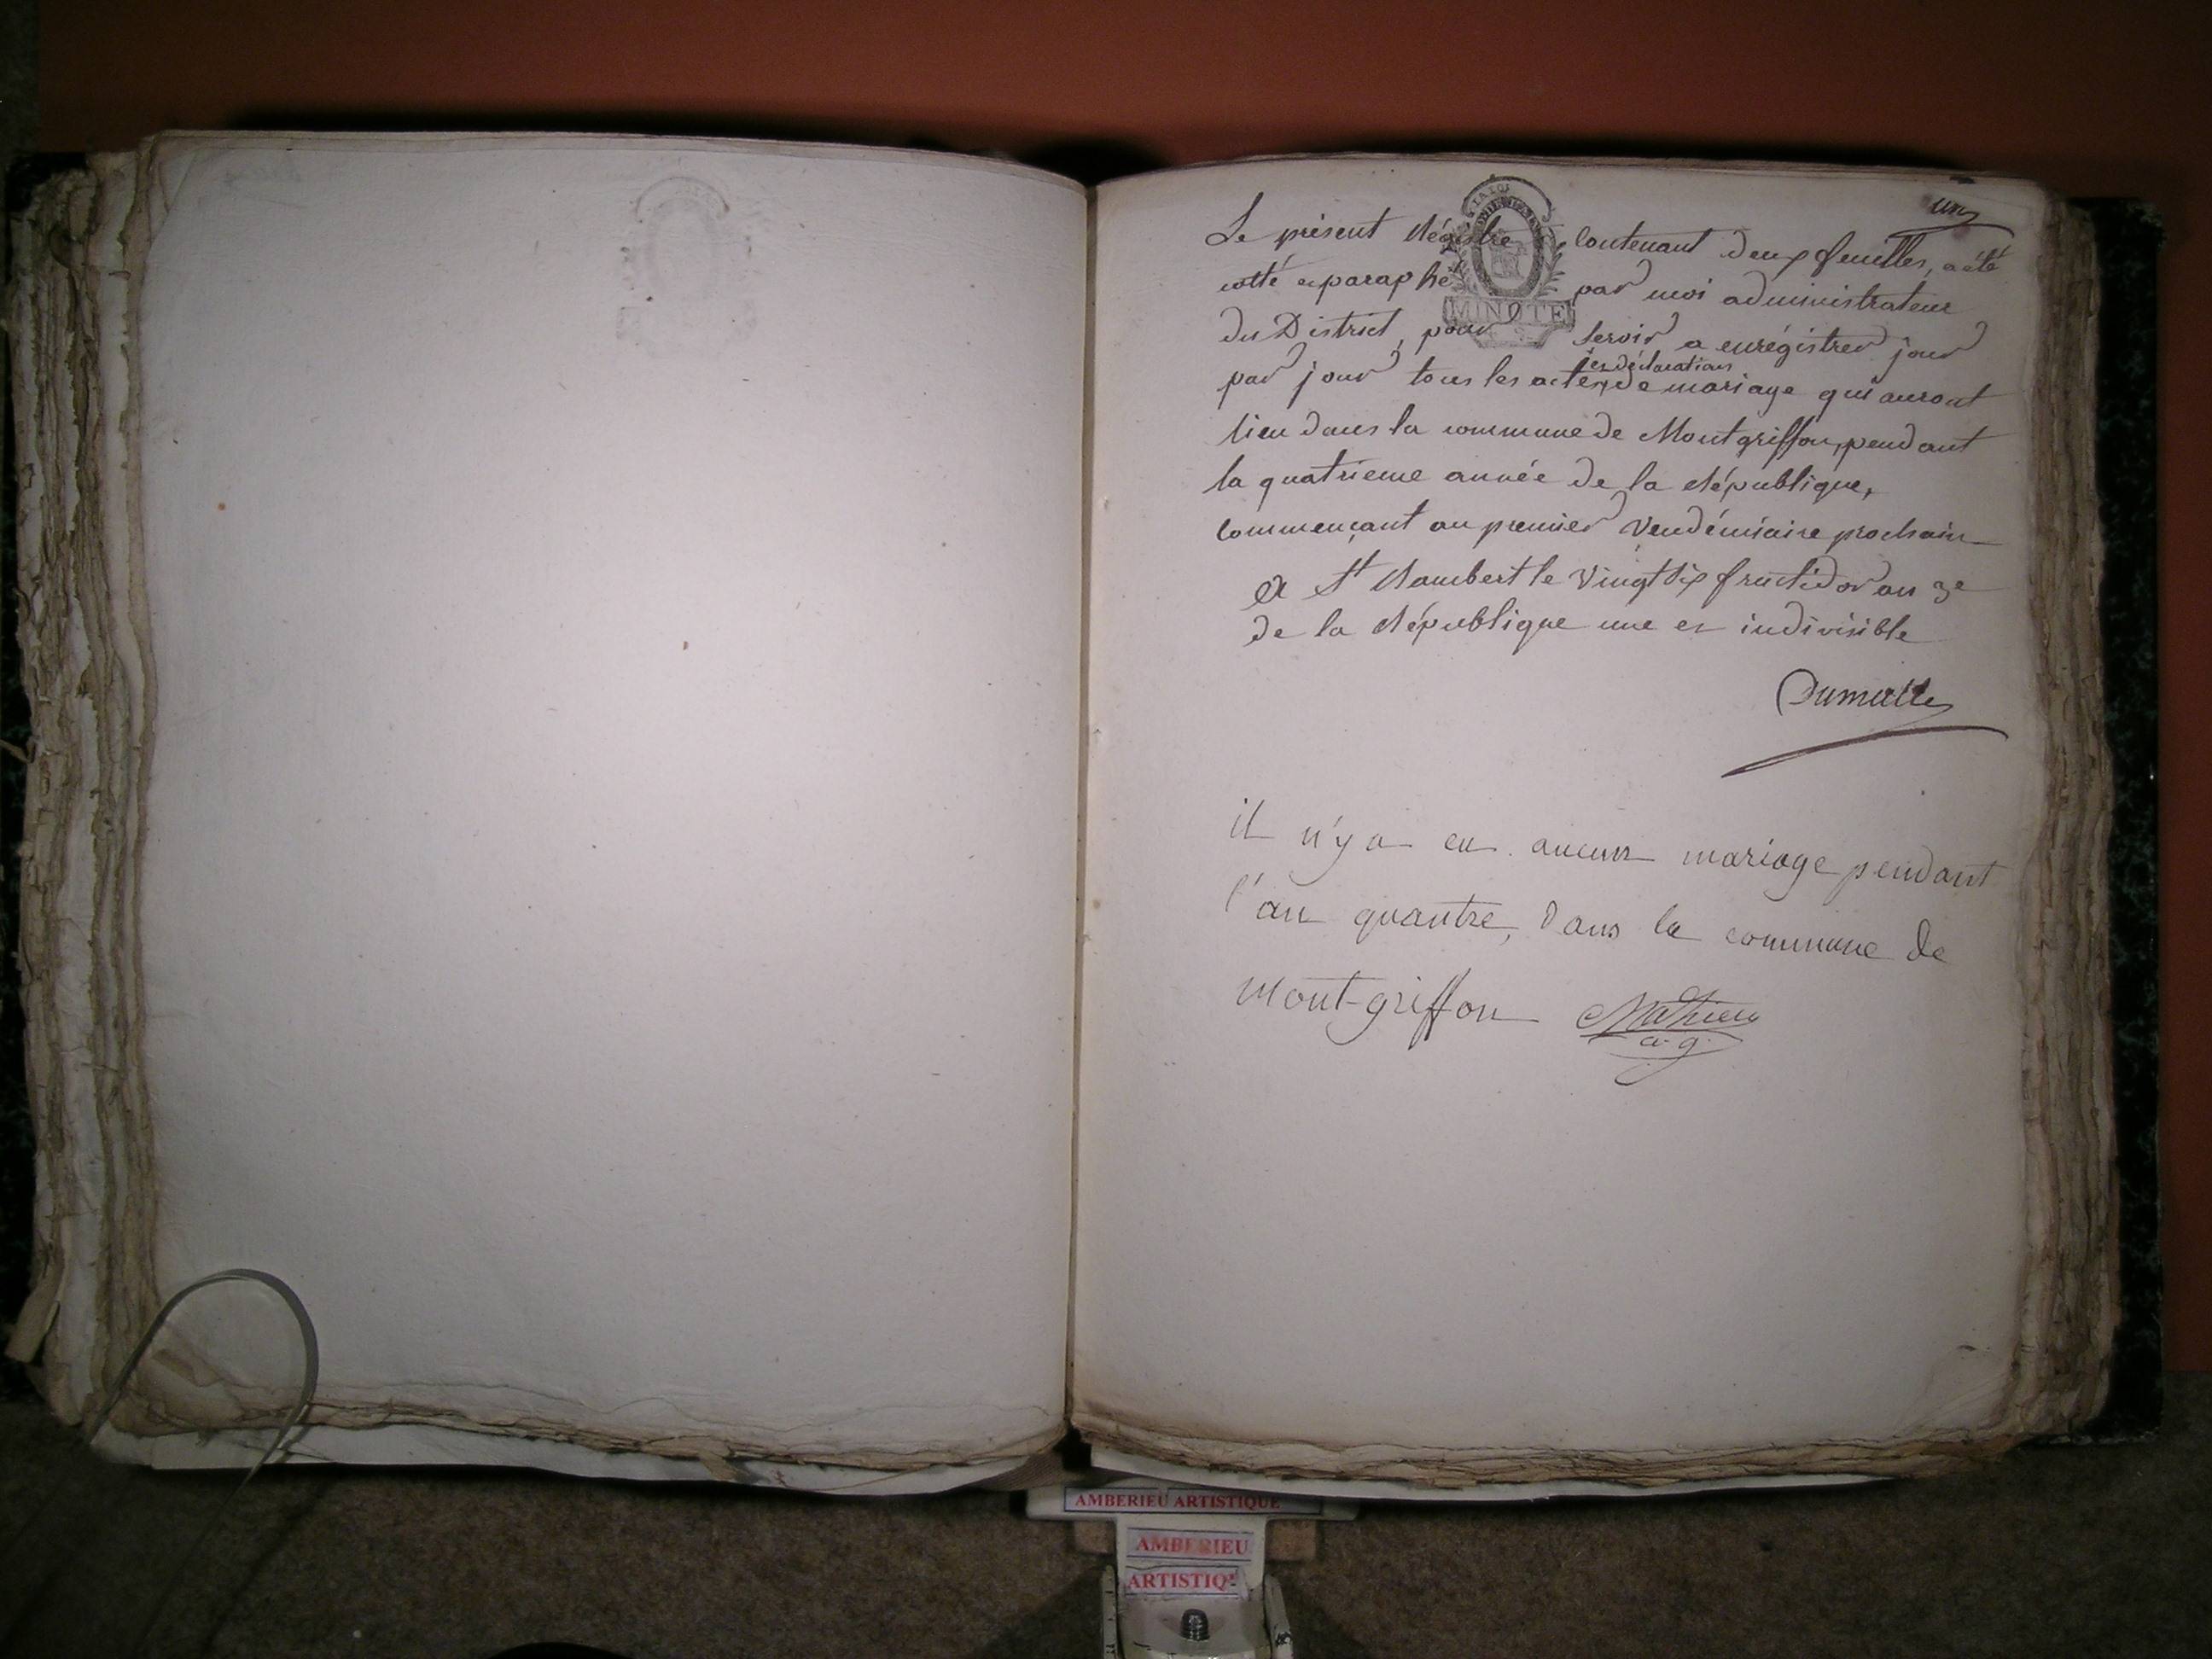 un
LA LOI
Le présent Régistre contenant deux feuilles, a été
cotté et paraphé par moi administrateur
MINUTE
du District, pour servir a enrégistrer jour
les déclarations
par jour tous les actes, de mariage qui auront
lieu dans la commune de Montgriffon, pendant
la quatrieme année de la République,
Commençant au premier Vendémiaire prochain
a St Rambert le Vingt six fructidor an 3e
de la République une et indivisible
Dumolle
il n'y a eu aucun mariage pendant
l'an quautre, dans la commune de
Mont-griffon Mathieu
a. g.
AMBERIEU ARTISTIQUE
AMBERIEU
ARTISTIQ